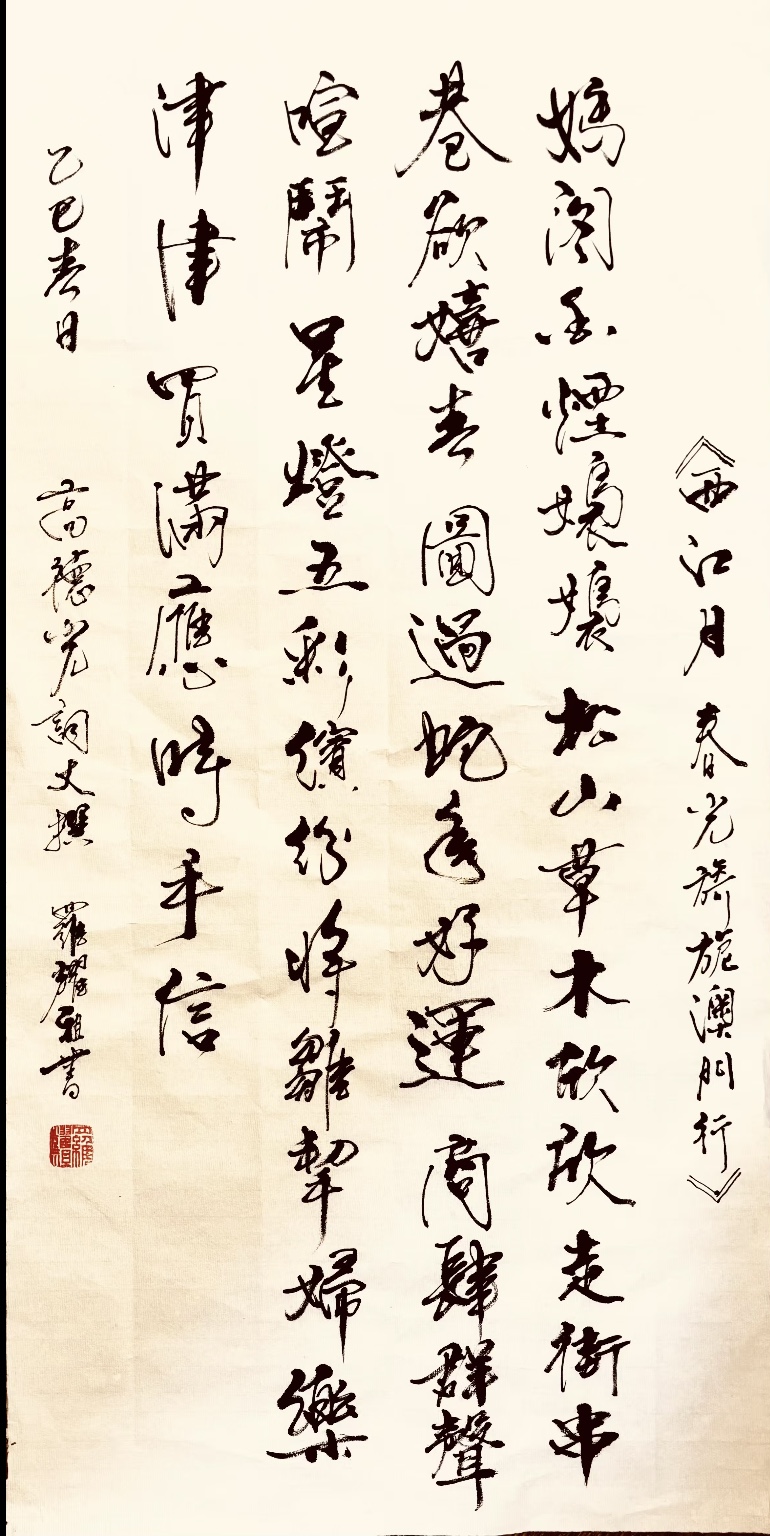 《西江月 春光旖旎澳門行》
媽閣香煙嬝嬝松山草木欣欣走街串
巷欲嬉春 圖過蛇年好運 商肆群聲
喧鬧星燈五彩繽紛將雛挈婦樂
津津 買滿應時手信
乙巳春日 高德光詞丈撰 羅耀書